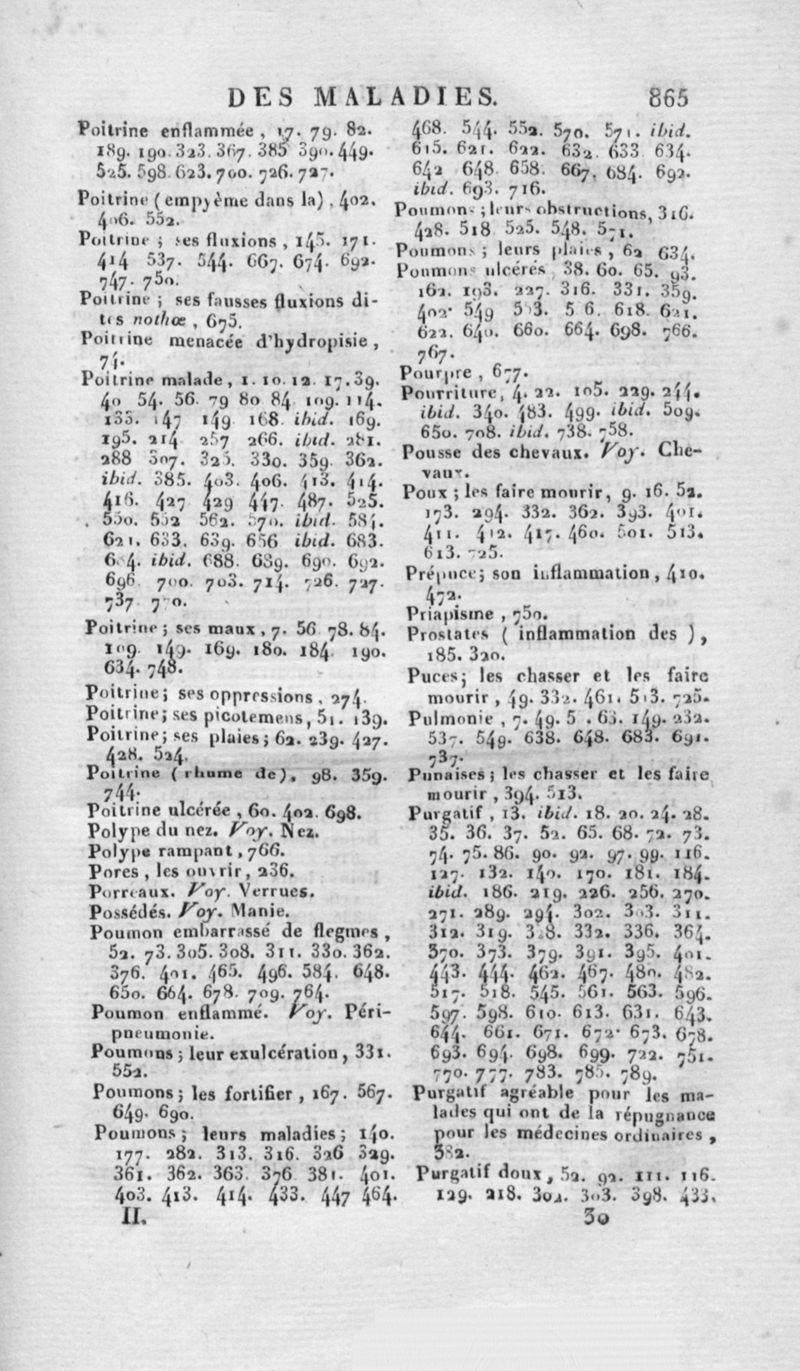 DES MALADIES. 865
Poitrine enflammée, 17. 79. 82.
189. 190. 323. 367. 385 390. 449.
525. 598. 623. 700. 726. 727.
Poitrine (empyème dans la), 402.
406. 552.
Poitrine ; ses fluxions, 145. 171.
414 537. 544. 667. 674. 692.
747. 750.
Poitrine ; ses fausses fluxions di-
tes nothœ, 675.
Poitrine menacée d'hydropisie,
74.
Poitrine malade, 1. 10. 12. 17. 39.
40 54. 56. 79 80 84 109. 114.
133. 147 149 168. ibid. 169.
195. 214 257 266. ibid. 281.
288 307. 325. 330. 359. 362.
ibid. 385. 403. 406. 413. 414.
416. 427 429 447. 487. 525.
550. 552 562. 570. ibid. 584.
621. 633. 639. 656 ibid. 683.
ibid. 688. 689. 690. 692.
696 700. 703. 714. 726. 727.
737
Poitrine ; ses maux, 7. 56 78. 84.
109 149. 169. 180. 184. 190.
634. 748.
Poitrine ; ses oppressions, 274.
Poitrine ; ses picotemens, 51. 139.
Poitrine ; ses plaies ; 62. 239. 427.
428. 524.
Poitrine (rhume de), 98. 359.
744.
Poitrine ulcérée, 60. 402. 698.
Polype du nez. Voy. Nez.
Polype rampant, 766.
Pores, les ouvrir, 236.
Porreaux. Voy. Verrues.
Possédés. Voy. Manie.
Poumon embarrassé de flegmes,
52. 73. 305. 308. 311. 330. 362.
376. 401. 465. 496. 584. 648.
650. 664. 678. 709. 764.
Poumon enflammé. Voy. Péri-
pneumonie.
Poumons ; leur exulcération, 331.
552.
Poumons ; les fortifier, 167. 567.
649. 690.
Poumons ; leurs maladies ; 140.
177. 282. 313. 316. 326 329.
361. 362. 363. 376 381. 401.
403. 413. 414. 433. 447 464.
II.
468. 544. 552. 570. 571. ibid.
615. 621. 622. 632. 633 634.
642 648. 658. 667. 684. 692.
ibid. 693. 716.
Poumons ; leurs obstructions, 316.
428. 518 525. 548. 571.
Poumons ; leurs plaies, 62 634.
Poumons ulcérés 38. 60. 65. 93.
162. 193. 227. 316. 331. 359.
402. 549 618. 621.
622. 640. 660. 664. 698. 766.
767.
Pourpre, 677.
Pourriture, 4. 22. 105. 229. 244.
ibid. 340. 483. 499. ibid. 509.
650. 708. ibid. 738. 758.
Pousse des chevaux. Voy. Che-
vaux.
Poux ; les faire mourir, 9. 16. 52.
173. 294. 332. 362. 393. 401.
411. 412. 417. 460. 501. 513.
613. 725.
Prépuce ; son inflammation, 410.
472.
Priapisme, 750.
Prostates ( inflammation des ),
185. 320.
Puces ; les chasser et les faire
mourir, 49. 332. 461. 513. 725.
Pulmonie, 7. 49. 63. 149. 232.
537. 549. 638. 648. 683. 691.
737.
Punaises ; les chasser et les faire
mourir, 394. 513.
Purgatif, 13. ibid. 18. 20. 24. 28.
35. 36. 37. 52. 65. 68. 72. 73.
74. 75. 86. 90. 92. 97. 99. 116.
127. 132. 140. 170. 181. 184.
ibid. 186. 219. 226. 256. 270.
271. 289. 294. 302. 303. 311.
312. 319. 332. 336. 364.
370. 373. 379. 391. 395. 401.
443. 444. 462. 467. 480. 482.
517. 518. 545. 561. 563. 596.
597. 598. 610. 613. 631. 643.
644. 661. 671. 672. 673. 678.
693. 694. 698. 699. 722. 751.
770. 777. 783. 785. 789.
Purgatif agréable pour les ma-
lades qui ont de la répugnance
pour les médecines ordinaires,
382.
Purgatif doux, 52. 92. 111. 116.
129. 218. 302. 303. 398. 433.
30